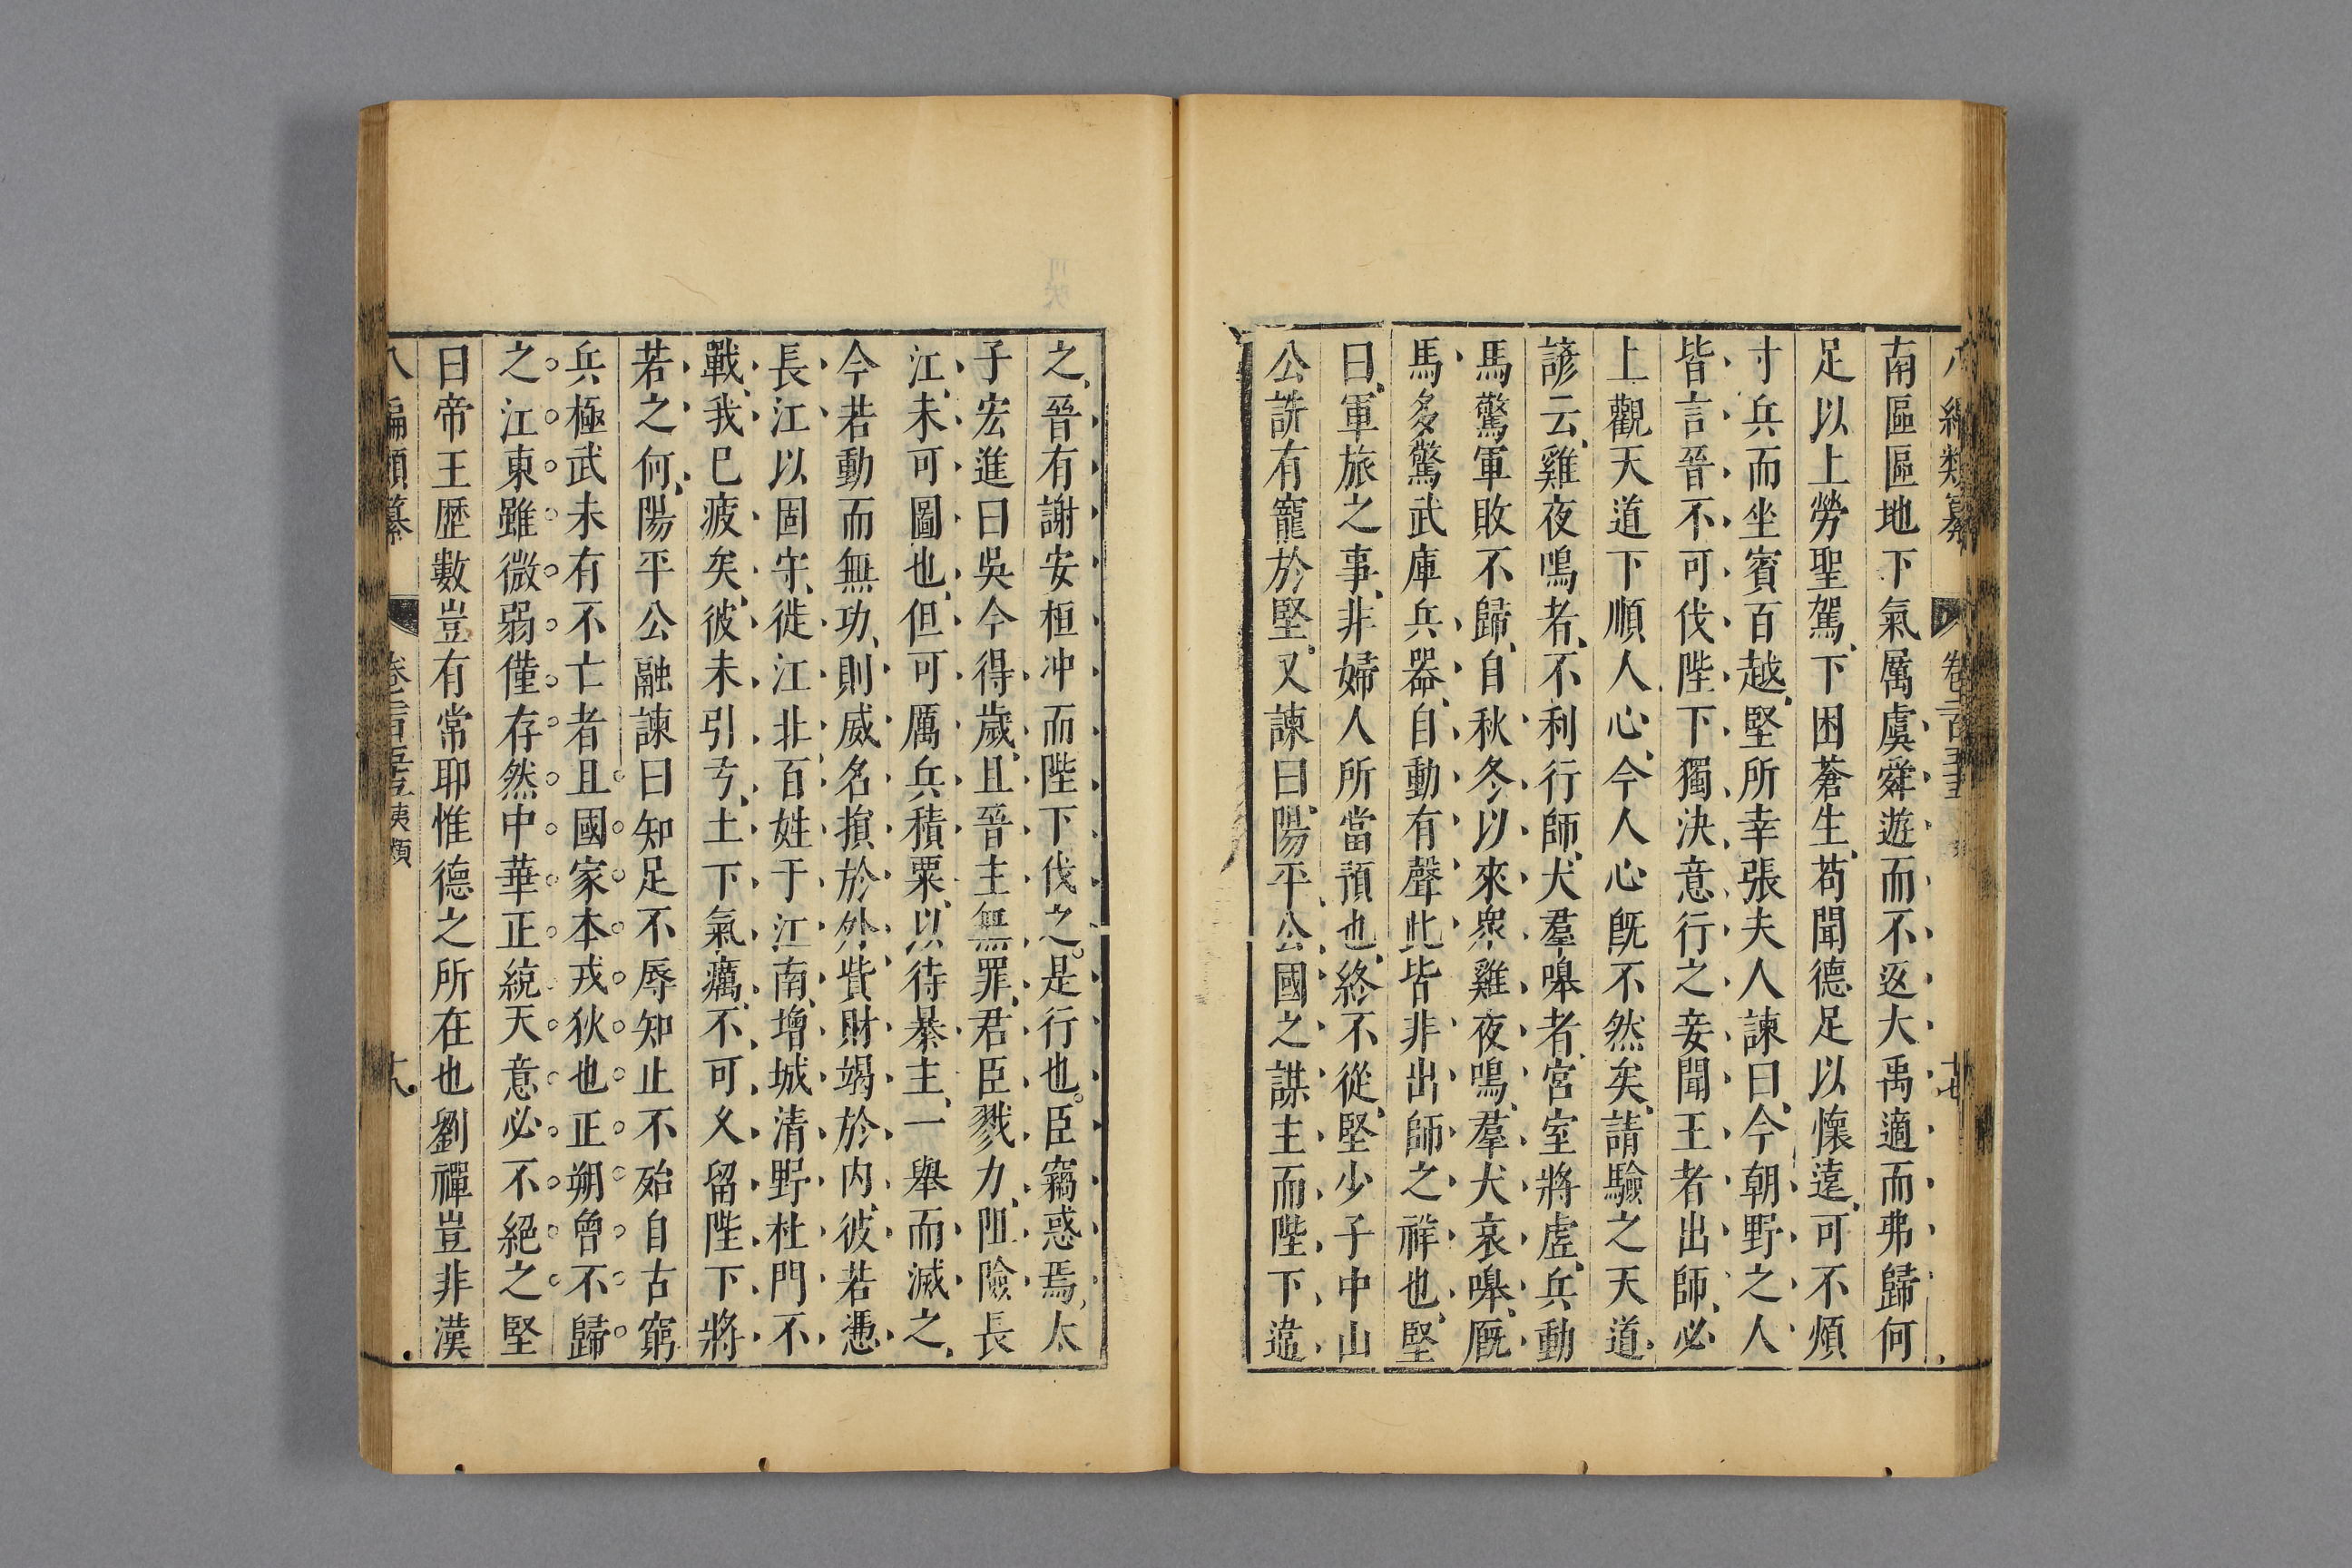 八編類纂 卷二百五十五 十七
南區區地下氣厲虞舜遊而不返大禹適而弗歸何
足以上勞聖駕下困蒼生苟聞德足以懷遠可不煩
寸兵而坐賓百越堅所幸張夫人諫曰今朝野之人
皆言晉不可伐陛下獨決意行之妾聞王者出師必
上觀天道下順人心今人心既不然矣請驗之天道
諺云雞夜鳴者不利行師犬羣嘷者宮室將虛兵動
馬驚軍敗不歸自秋冬以來衆雞夜鳴羣犬哀嘷廐
馬多驚武庫兵器自動有聲此皆非出師之祥也堅
曰軍旅之事非婦人所當預也終不從堅少子中山
公詵有寵於堅又諫曰陽平公國之謀主而陛下違
之晉有謝安桓冲而陛下伐之是行也臣竊惑焉太
子宏進曰吳今得歲且晉主無罪君臣戮力阻險長
江未可圖也但可厲兵積粟以待暴主一舉而滅之
今若動而無功則威名損於外貲財竭於內彼若憑
長江以固守徙江北百姓于江南增城清野杜門不
戰我已疲矣彼未引弓土下氣癘不可乆留陛下將
若之何陽平公融諫曰知足不辱知止不殆自古窮
兵極武未有不亡者且國家本戎狄也正朔會不歸
之江東雖微弱僅存然中華正統天意必不絕之堅
曰帝王歷數豈有常耶惟德之所在也劉禪豈非漢
八編類纂 卷二百五十五夷類 十八